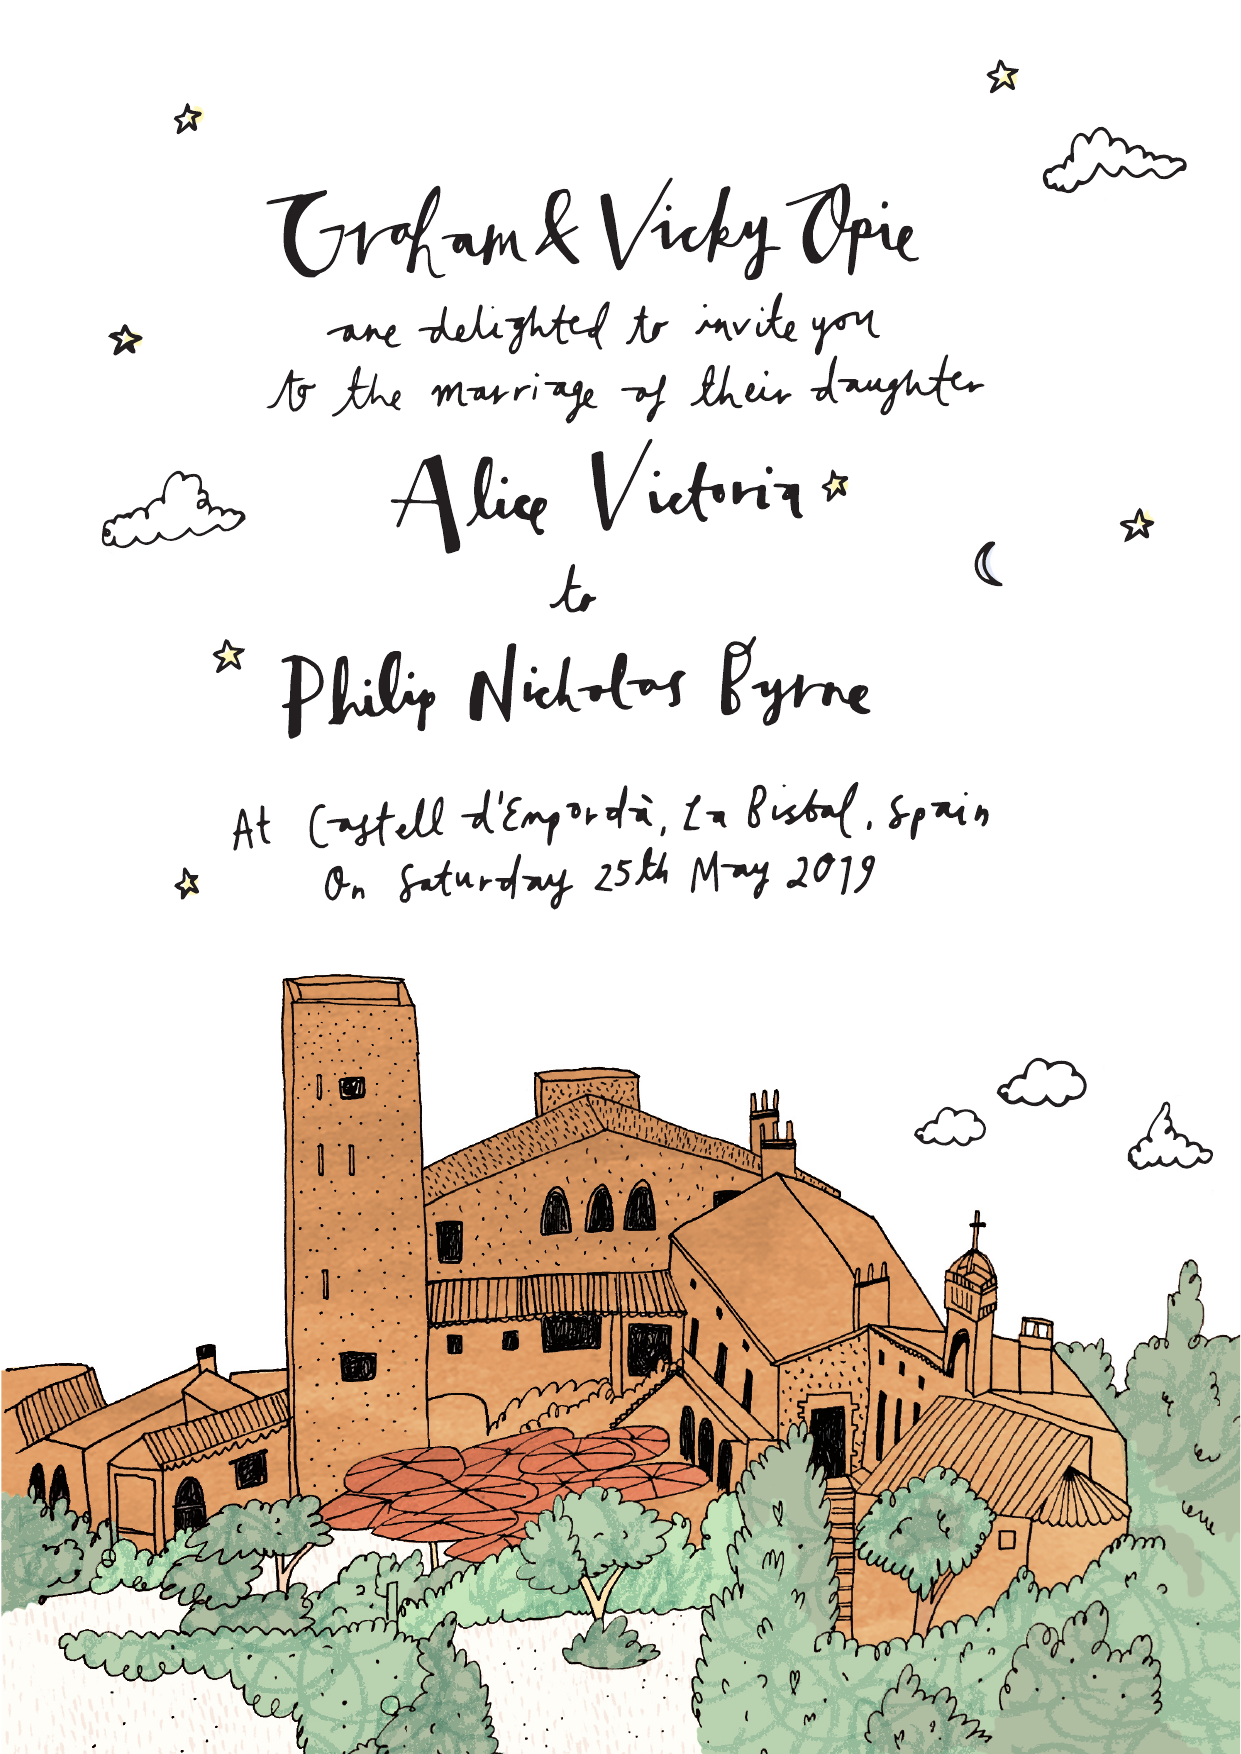 Graham & Vicky Opie
are delighted to invite you
to the marriage of their daughter
Alice Victoria
to
Philip Nicholas Byrne
At Castell d'Empordà, La Bisbal, Spain
On Saturday 25th May 2019